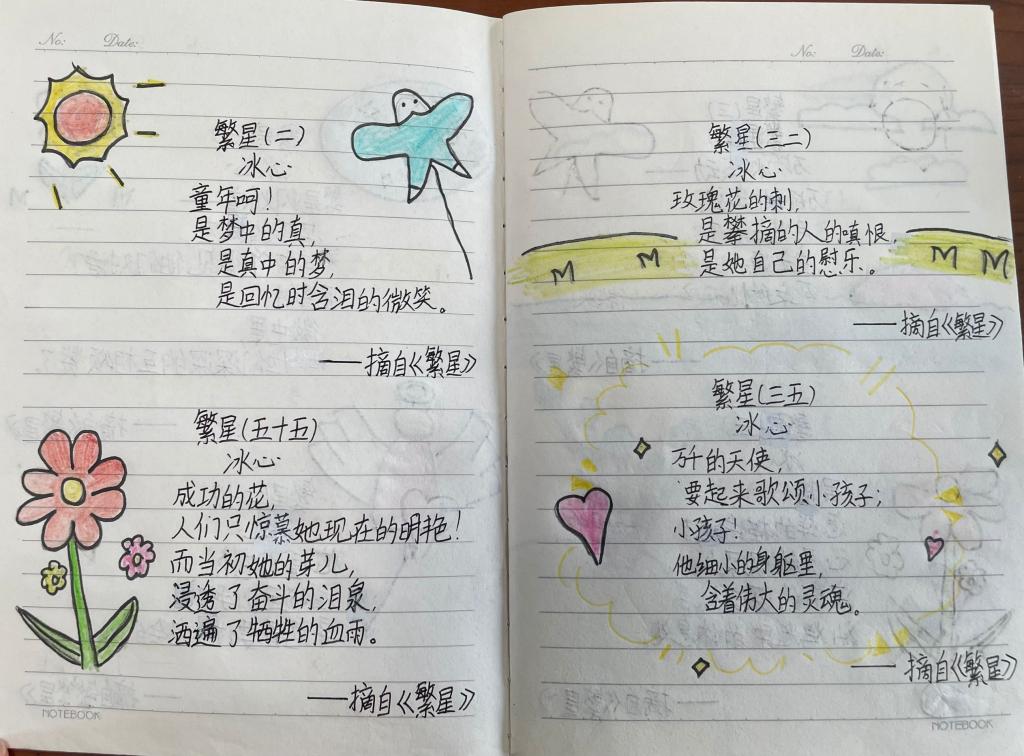 No: Date:
繁星(二)
冰心
童年呵!
是梦中的真,
是真中的梦,
是回忆时含泪的微笑。
——摘自《繁星》
繁星(五十五)
冰心
成功的花,
人们只惊慕她现在的明艳!
而当初她的芽儿,
浸透了奋斗的泪泉,
洒遍了牺牲的血雨。
——摘自《繁星》
NOTEBOOK
No: Date:
繁星(三二)
冰心
玫瑰花的刺,
是攀摘的人的嗔恨,
是她自己的慰乐。
——摘自《繁星》
繁星(三五)
冰心
万千的天使,
要起来歌颂小孩子;
小孩子!
他细小的身躯里,
含着伟大的灵魂。
——摘自《繁星》
NOTEBOOK